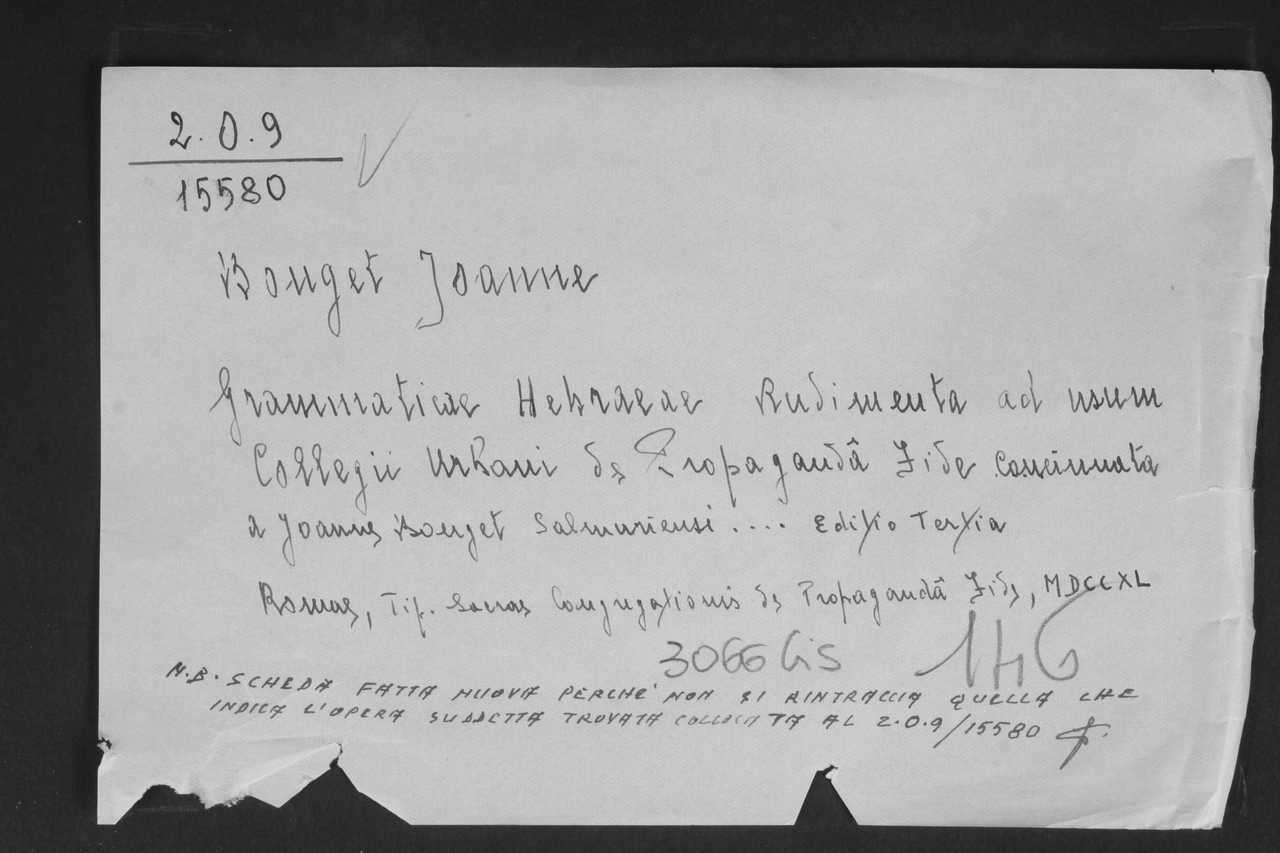 2.0.9
15580
Bouget Joanne
Grammaticae Hebraeae Rudimenta ad usum
Collegii Urbani de Propagandâ Fide Concinnata
a Joanne Bouget Salmuriensi.... Editio Tertia
Romae, Tip. Sacrae Congregationis de Propagandâ Fide, MDCCXL
3066 bis 146
N.B. SCHEDA FATTA NUOVA PERCHE' NON SI RINTRACCIA QUELLA CHE
INDICA L'OPERA SUDDETTA TROVATA COLLOCATA AL 2.0.9/15580